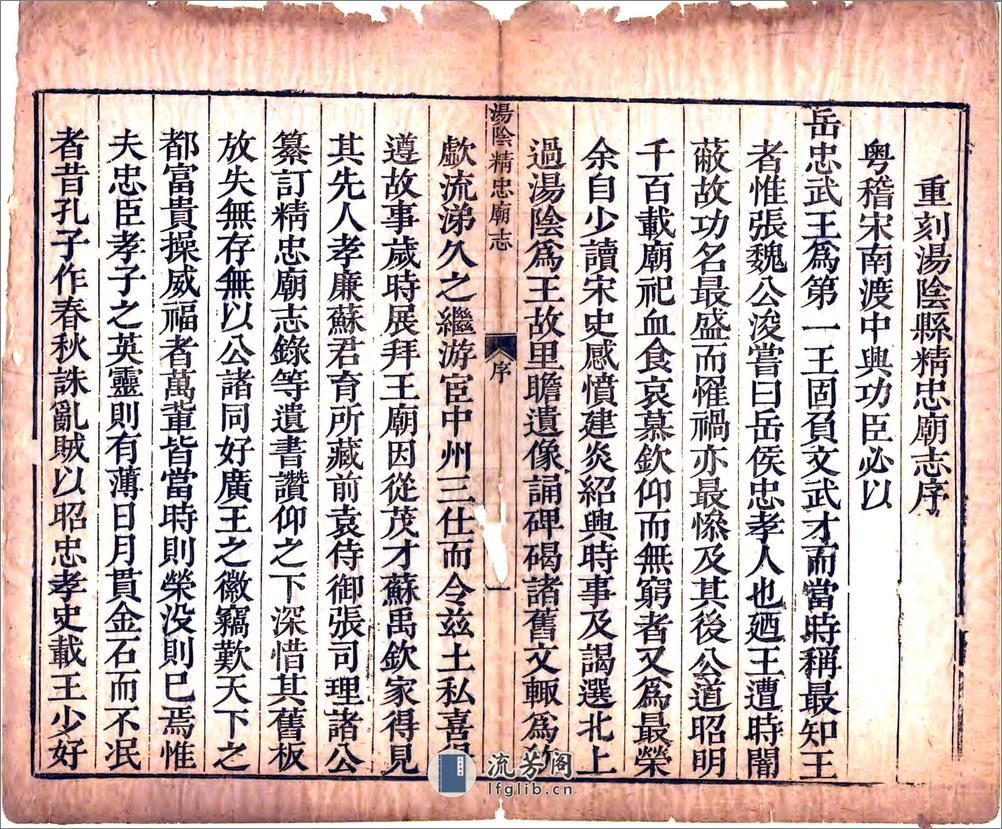 重刻湯陰縣精忠廟志序
粵稽宋南渡中興功臣必以
岳忠武王爲第一王固負文武才而當時稱最知王
者惟張魏公浚嘗曰岳侯忠孝人也廼王遭時闇
蔽故功名最盛而罹禍亦最慘及其後公道昭明
千百載廟祀血食哀慕欽仰而無窮者又爲最榮
余自少讀宋史感憤建炎紹興時事及謁選北上
過湯陰爲王故里瞻遺像誦碑碣諸舊文輙爲
湯陰精忠廟志
序
一
歔流涕久之繼游宦中州三仕而令兹土私喜得
遵故事歲時展拜王廟因從茂才蘇禹欽家得見
其先人孝廉蘇君育所藏前袁侍御張司理諸公
纂訂精忠廟志錄等遺書讚仰之下深惜其舊板
放失無存無以公諸同好廣王之徽竊歎天下之
都富貴操威福者萬輩皆當時則榮没則巳焉惟
夫忠臣孝子之英靈則有薄日月貫金石而不泯
者昔孔子作春秋誅亂賊以昭忠孝史載王少好
流芳阁
lfglib.cn